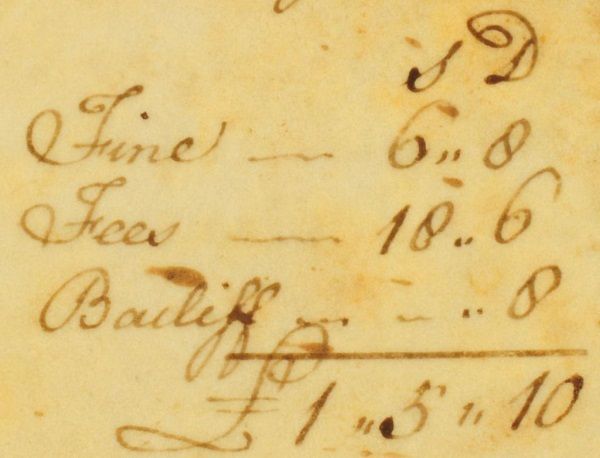 s D
Fine — 6 " 8
Fees — 18 " 6
Bailiff — - " 8
£ 1 " 5 " 10